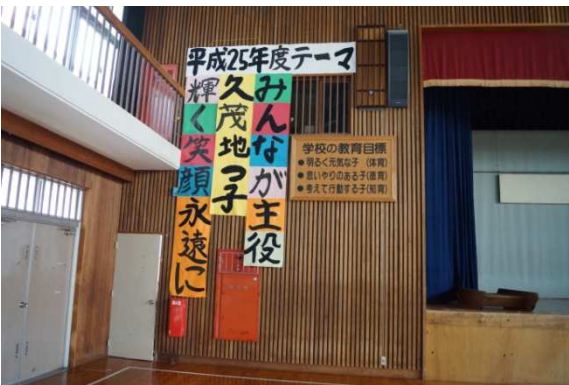 平成25年度テーマ
みんなが主役
久茂地っ子
輝く笑顔永遠に
学校の教育目標
●明るく元気な子（体育）
●思いやりのある子（徳育）
●考えて行動する子（知育）